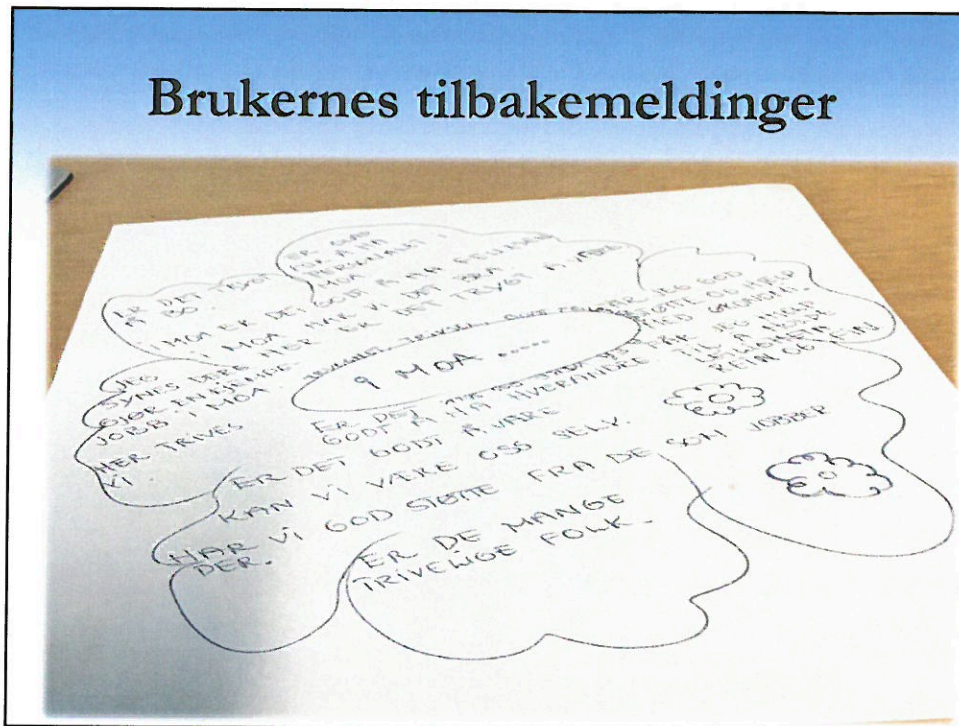 Brukernes tilbakemeldinger
ER DET GODT
Å BO.
ER GLAD
FOR Å HA
PERSONALET I
MOA
I MOA ER DET GODT Å HA
I MOA HAR VI DET BRA
HER ER DET TRYGT Å VÆRE
JEG
SYNES DERE
GJØR EN KJEMPE
JOBB I MOA
HER TRIVES
VI.
TRIVSEL,
I MOA .....
JEG GOD
STØTTE OG HJELP
MED
FÅR JEG HJELP
TIL Å HOLDE
REIN OG FIN
ER DET
GODT Å HA HVERANDRE
ER DET GODT Å VÆRE
KAN VI VÆRE OSS SELV.
HAR VI GOD STØTTE FRA DE SOM JOBBER
DER.
ER DE MANGE
TRIVELIGE FOLK.